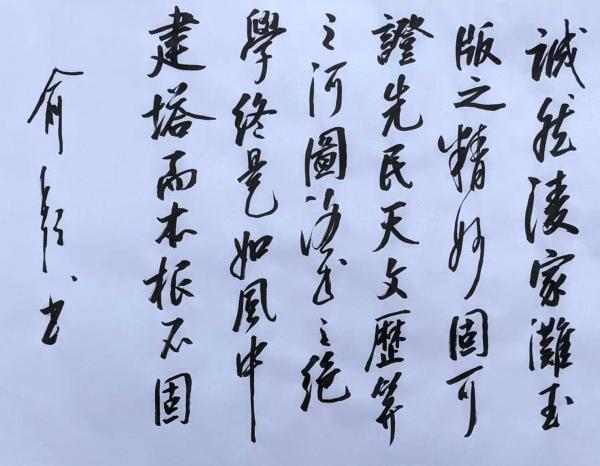 誠然凌家灘玉
版之精妙固可
證先民天文歷算
之河圖洛书之絕
學終是如風中
建塔而本根不固
俞书